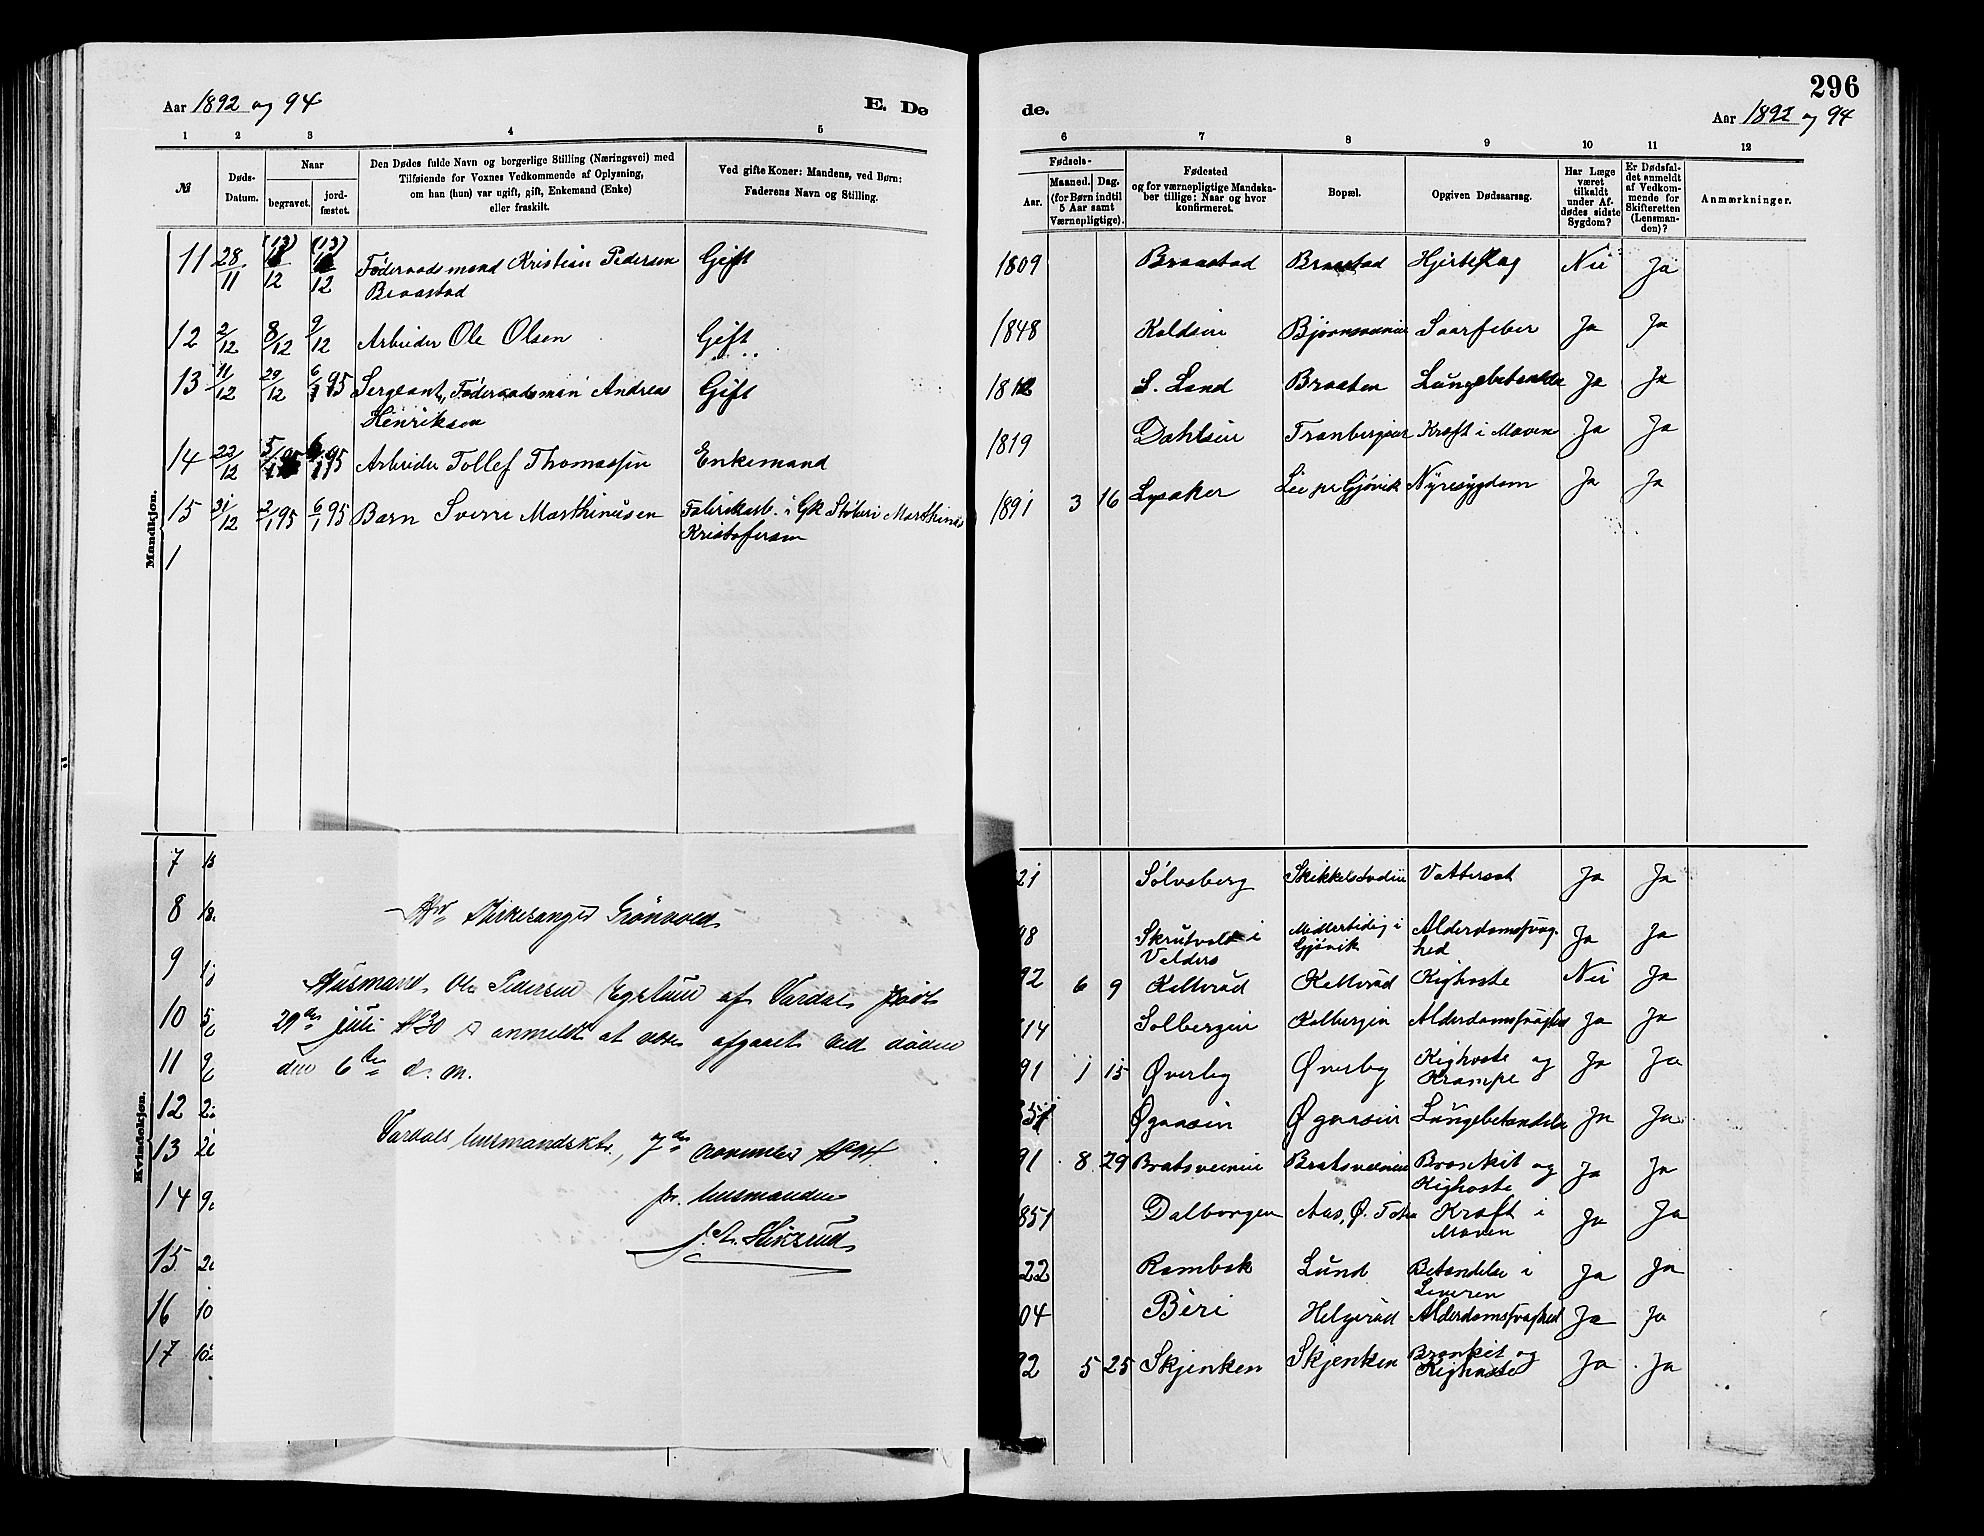 296
Aar 1892 og 94
E. De
de.
Aar 1892 og 94
1 2 3 4 5
6 7 8 9 10 11 12
№
Døds-
Datum.
Naar
begravet.
jord-
fæstet.
Den Dødes fulde Navn og borgerlige Stilling (Næringsvei) med
Tilføiende for Voxnes Vedkommende af Oplysning,
om han (hun) var ugift, gift, Enkemand (Enke)
eller fraskilt.
Ved gifte Koner: Mandens, ved Børn:
Faderens Navn og Stilling.
Fødsels-
Aar.
Maaned. Dag.
(for Børn indtil
5 Aar samt
Værnepligtige).
Fødested
og for værnepligtige Mandska-
ber tillige: Naar og hvor
konfirmeret.
Bopæl.
Opgiven Dødsaarsag.
Har Læge
været
tilkaldt
under Af-
dødes sidste
Sygdom?
Er Dødsfal-
det anmeldt
af Vedkom-
mende for
Skifteretten
(Lensman-
den)?
Anmærkninger.
Mandkjøn.
11 28/11 (13)/12 (13)/12 Føderaadsmand Kristian Pedersen Gift 1809 Braastad Braastad Hjerteslag Nei Ja
Braastad
12 2/12 8/12 9/12 Arbeider Ole Olsen Gift 1848 Koldsin Saarfeber Ja Ja
13 11/12 29/12 6/1 95 Sergeant, Føderaadsman Andreas Gift 1812 S. Land Braaten Lungebetændelse Ja Ja
Henriksen
14 22/12 5/1 95 6/1 95 Arbeider Tollef Thomassen Enkemand 1819 Dahlsin Kræft i Maven Ja Ja
15 31/12 2/1 95 6/1 95 Barn Sverre Marthinusen Fabrikarb. i Gk Marthinus 1891 3 16 Lysaker Lie pr Gjøvik Nyresygdom Ja Ja
Kristofersen
1
Kvindekjøn.
7 21 Sølvsberg Vattersot Ja Ja
8 98 Skrutvold i Midlertidig i Alderdomssvag- Ja Ja
Valders Gjøvik hed
9 92 6 9 Kolterud Kolterud Kighoste Nei Ja
10 14 Solbergin Kolbergin Alderdomssvaghed Ja Ja
11 91 1 15 Øverby Øverby Kighoste og Ja Ja
Krampe
12 51 Øgaasin Øgaasin Lungebetændelse Ja Ja
13 91 8 29 Bratsveenin Bratsveenin Bronkit og Ja Ja
Kighoste
14 851 Dalborgen Aas, Ø. Toten Kræft i Ja Ja
Maven
15 22 Rambek Lund Betændelse i Ja Ja
Leveren
16 04 Biri Helgerud Alderdomssvaghed Ja Ja
17 92 5 25 Skjenken Skjenken Bronkit og Ja Ja
Kighoste
Hr. Kirkesanger Grønvold
Husmand Ole Pedersen Egstuen af Vardal født
29de juli 1830 er anmeldt at være afgaaet ved døden
den 6te d. m.
Vardals lensmandsktr., 7de november 1894.
pr. lensmanden